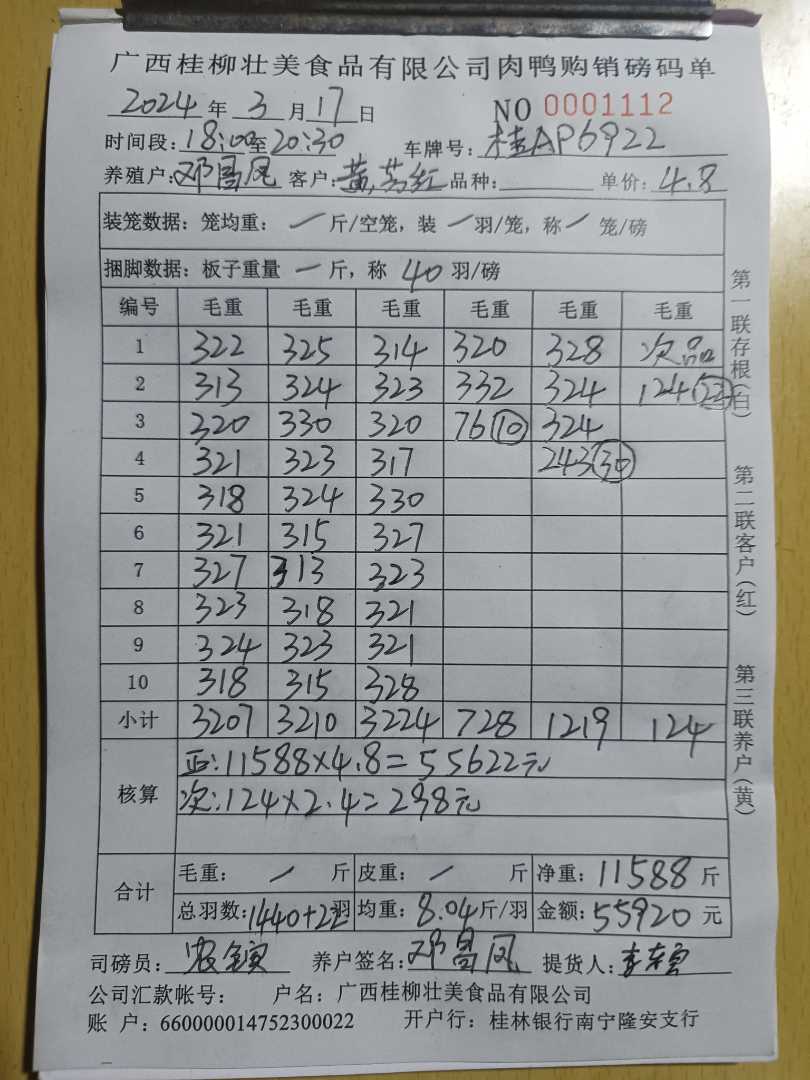 广西桂柳壮美食品有限公司肉鸭购销磅码单
2024年 3月17日 NO 0001112
时间段:18:00至20:30 车牌号:桂AP6922
养殖户:邓昌凤 客户:黄芳红 品种: 单价:4.8
装笼数据:笼均重: / 斤/空笼,装 / 羽/笼,称 / 笼/磅
捆脚数据:板子重量 一 斤,称 40 羽/磅
编号 毛重 毛重 毛重 毛重 毛重 毛重
1 322 325 314 320 328 次品
2 313 324 323 332 324 124(22)
3 320 330 320 76(10) 324
4 321 323 317 243(30)
5 318 324 330
6 321 315 327
7 327 313 323
8 323 318 321
9 324 323 321
10 318 315 328
小计 3207 3210 3224 728 1219 124
核算
正:11588×4.8=55622元
次:124×2.4=298元
合计
毛重: / 斤 皮重: / 斤 净重:11588斤
总羽数:1440+22羽 均重:8.04斤/羽 金额:55920元
司磅员: 养户签名:邓昌凤 提货人:
公司汇款帐号: 户名:广西桂柳壮美食品有限公司
账 户:660000014752300022 开户行:桂林银行南宁隆安支行
第一联存根(白)
第二联客户(红)
第三联养户(黄)